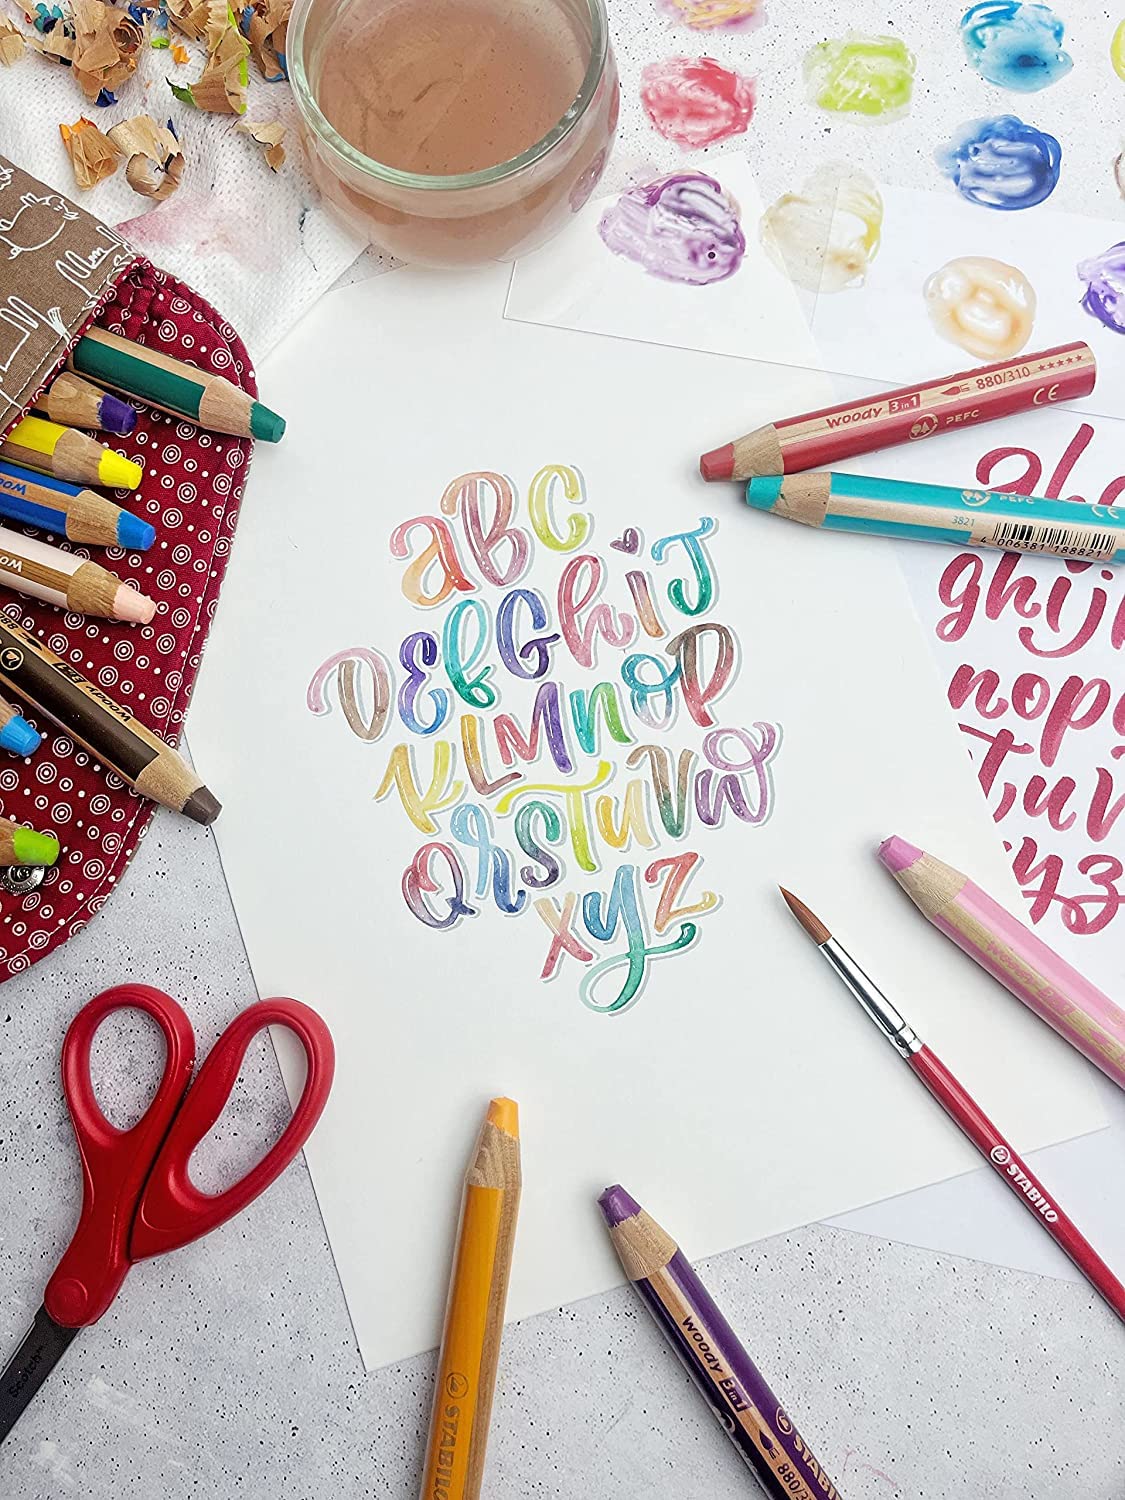 aBC
DEFGhiJ
KLMNOP
QRSTUVW
xyz
woody 3 in 1 880/310 ★★★★★
PEFC CE
PEFC CE
3821
4 006381 188821
ghij
nop
tuv
yz
woody
STABILO
STABILO
woody 3 in 1
880/3
STABIL
Scotch